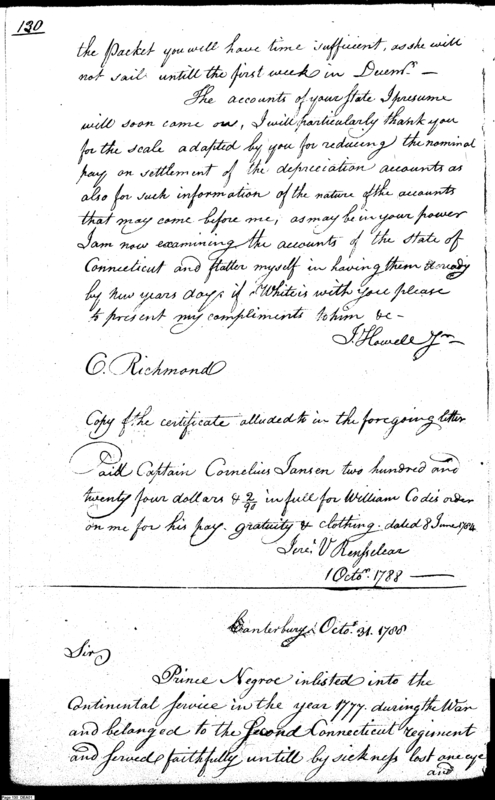 130
the Packet you will have time sufficient, as she will
not sail untill the first week in Decemr. —
The accounts of your State I presume
will soon come on, I will particularly thank you
for the scale adapted by you for reducing the nominal
pay on settlement of the depreciation accounts as
also for such information of the nature of the accounts
that may come before me, as may be in your power
I am now examining the accounts of the State of
Connecticut and flatter myself in having them ready
by New years day, if White is with you please
to present my compliments to him &c —
J. Howell Jr —
C. Richmond
Copy of the certificate alluded to in the foregoing letter
Paid Captain Cornelius Jansen two hundred and
twenty four dollars & 2/90 in full for William Codes order
on me for his pay. gratuity & clothing. dated 8 June 1784
Jere. V Rensselear
1 Octor. 1788 —
Canterbury Octor. 31. 1788
Sir
Prince Negroe inlisted into the
Continental Service in the year 1777. during the War
and belonged to the Second Connecticut regiment
and served faithfully untill by sickness lost one eye
and